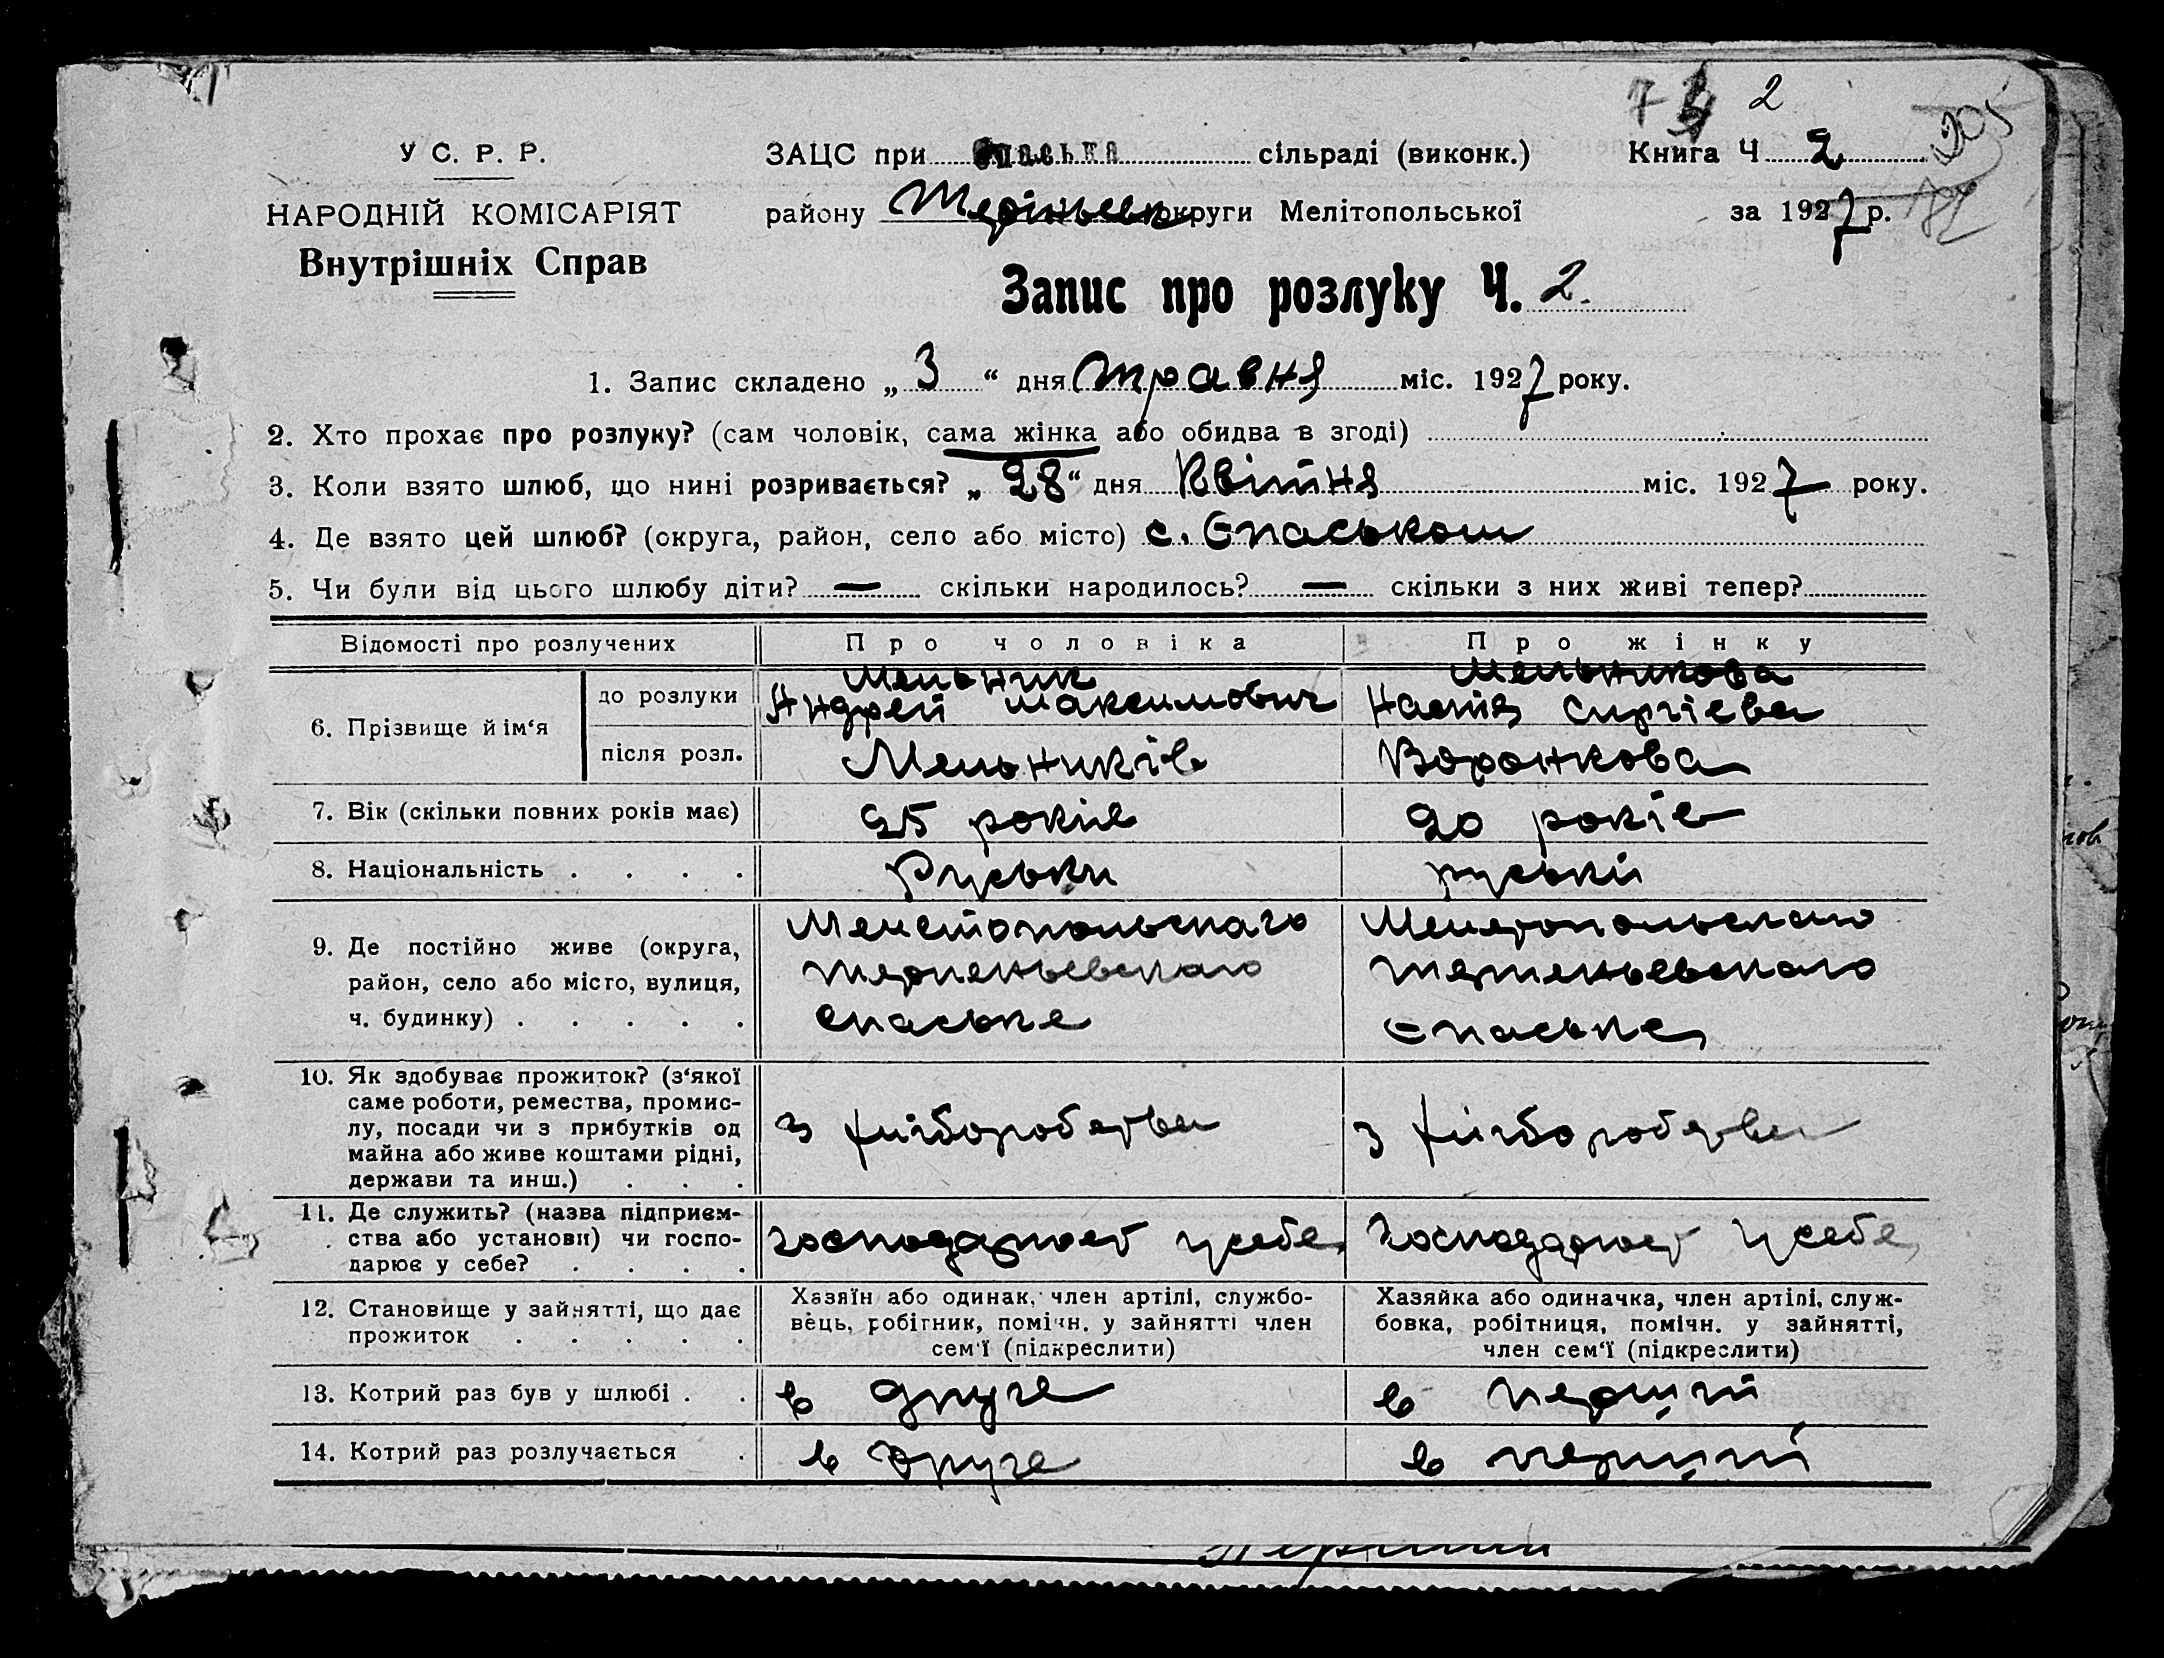 2
205
У С. Р. Р.
ЗАЦС при Спаська сільраді (виконк.)
Книга Ч 2
НАРОДНІЙ КОМІСАРІЯТ
району округи Мелітопольської
за 1927 р.
Внутрішніх Справ
Запис про розлуку Ч. 2.
1. Запис складено „ 3 “ дня травня міс. 1927 року.
2. Хто прохає про розлуку? (сам чоловік, сама жінка або обидва в згоді)
3. Коли взято шлюб, що нині розривається? „ 28 “ дня Квітня міс. 1927 року.
4. Де взято цей шлюб? (округа, район, село або місто) с. Спаськом
5. Чи були від цього шлюбу діти? — скільки народилось? — скільки з них живі тепер?
Відомості про розлучених
Про чоловіка
Про жінку
6. Прізвище й ім‘я
до розлуки
Мельник
Андрей Максимович
Мельникова
Настія Сиргієва
після розл.
Мельників
Воронкова
7. Вік (скільки повних років має)
25 років
20 років
8. Національність . . . .
Руськи
руській
9. Де постійно живе (округа,
район, село або місто, вулиця,
ч. будинку) . . . . .
Мелетопольскаго
Терпеньевскаго
Спаське
Мелетопольскаго
Терпеньевскаго
Спаське
10. Як здобуває прожиток? (з‘якої
саме роботи, ремества, промис-
лу, посади чи з прибутків од
майна або живе коштами рідні,
держави та инш.) . . .
з хліборобства
з хліборобства
11. Де служить? (назва підприєм-
ства або установи) чи госпо-
дарює у себе? . . . .
господарює у себе
господарює у себе
12. Становище у зайнятті, що дає
прожиток . . . . .
Хазяїн або одинак, член артілі, службо-
вець, робітник, помічн. у зайнятті член
сем‘ї (підкреслити)
Хазяйка або одиначка, член артілі, служ-
бовка, робітниця, помічн. у зайнятті,
член сем‘ї (підкреслити)
13. Котрий раз був у шлюбі . .
в друге
в перший
14. Котрий раз розлучається .
в друге
в перший